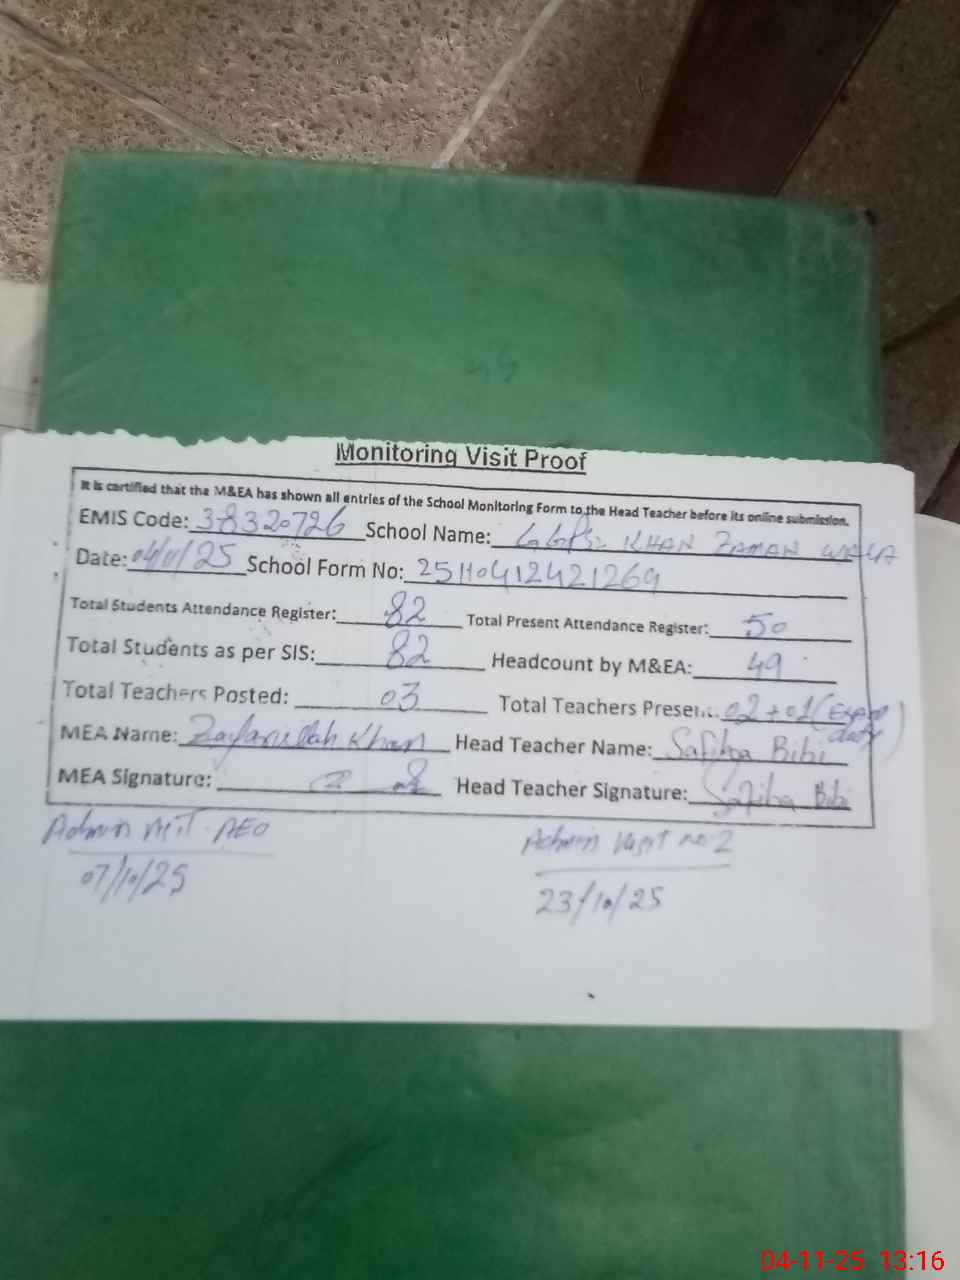 Monitoring Visit Proof
It is certified that the M&EA has shown all entries of the School Monitoring Form to the Head Teacher before its online submission.
EMIS Code: 38320726 School Name: GGPS KHAN ZAMAN WALA
Date: 04/11/25 School Form No: 25110412421269
Total Students Attendance Register: 82 Total Present Attendance Register: 50
Total Students as per SIS: 82 Headcount by M&EA: 49
Total Teachers Posted: 03 Total Teachers Present: 02+01 (Exam duty)
MEA Name: Zafarullah Khan Head Teacher Name: Safiha Bibi
MEA Signature: Head Teacher Signature: Safiha Bibi
Admin visit AEO Admin visit no 2
07/10/25 23/10/25
04-11-25 13:16